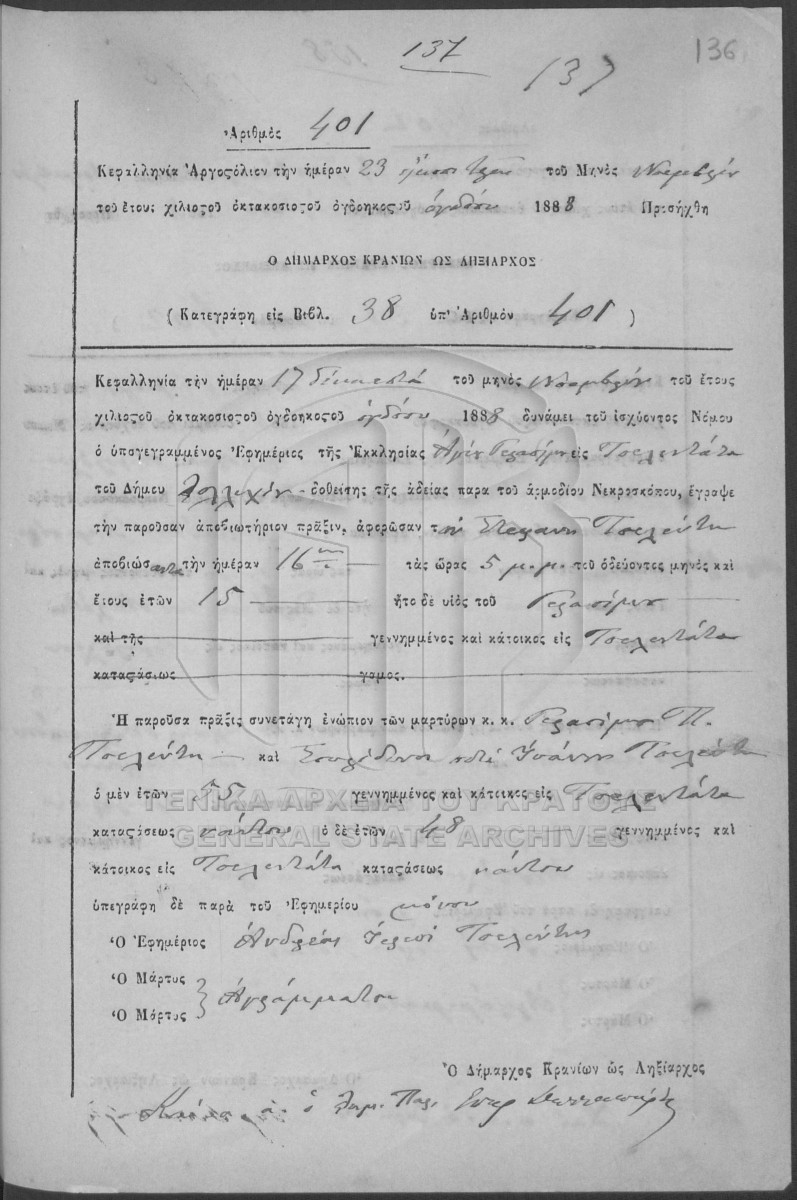 137
137
136
Ἀριθμὸς 401
Κεφαλληνία Ἀργοςόλιον τὴν ἡμέραν 23 εἴκοσι τρεῖς τοῦ Μηνὸς Νοεμβρίου
τοῦ ἔτους χιλιοςοῦ ὀκτακοσιοςοῦ ὀγδοηκοςοῦ ὀγδόου 1888 Προσήχθη
Ο ΔΗΜΑΡΧΟΣ ΚΡΑΝΙΩΝ ΩΣ ΛΗΞΙΑΡΧΟΣ
( Κατεγράφη εἰς Βιβλ. 38 ὑπ' Ἀριθμὸν 401 )
Κεφαλληνία τὴν ἡμέραν 17 δέκα ἑπτὰ τοῦ μηνὸς Νοεμβρίου τοῦ ἔτους
χιλιοςοῦ ὀκτακοσιοςοῦ ὀγδοηκοςοῦ ὀγδόου 1888 δυνάμει τοῦ ἰσχύοντος Νόμου
ὁ ὑπογεγραμμένος Ἐφημέριος τῆς Ἐκκλησίας Ἁγίου Γερασίμου εἰς Τσελεντάτα
τοῦ Δήμου δοθείσης τῆς ἀδείας παρα τοῦ ἁρμοδίου Νεκροσκόπου, ἔγραψε
τὴν παροῦσαν ἀποβιωτήριον πρᾶξιν, ἀφορῶσαν τὸν Στεφανῆ Τσελέντη
ἀποβιώσαντα τὴν ἡμέραν 16ην τὰς ὥρας 5 μ.μ. τοῦ ὁδεύοντος μηνὸς καὶ
ἔτους ἐτῶν 15 ἦτο δὲ υἱὸς τοῦ Γερασίμου
καὶ τῆς γεννημμένος καὶ κάτοικος εἰς Τσελεντάτα
καταςάσεως γαμος.
Ἡ παροῦσα πρᾶξις συνετάγη ἐνώπιον τῶν μαρτύρων κ. κ. Γερασίμου Π.
Τσελέντη καὶ Σπυρίδωνος ποτὲ Ἰωάννη Τσελέντη
ὁ μὲν ἐτῶν 55 γεννημμένος καὶ κάτοικος εἰς Τσελεντάτα
καταςάσεως ὁ δὲ ἐτῶν 48 γεννημμένος καὶ
κάτοικος εἰς Τσελεντάτα καταςάσεως
ὑπεγράφη δὲ παρὰ τοῦ Ἐφημερίου μόνου
Ὁ Ἐφημέριος Ἀνδρέας Ἱερεὺς Τσελέντης
Ὁ Μάρτυς
Ἀγράμματοι
Ὁ Μάρτυς
Ὁ Δήμαρχος Κρανίων ὡς Ληξίαρχος
ὁ Δημ. Παρ.
ΓΕΝΙΚΑ ΑΡΧΕΙΑ ΤΟΥ ΚΡΑΤΟΥΣ
GENERAL STATE ARCHIVES